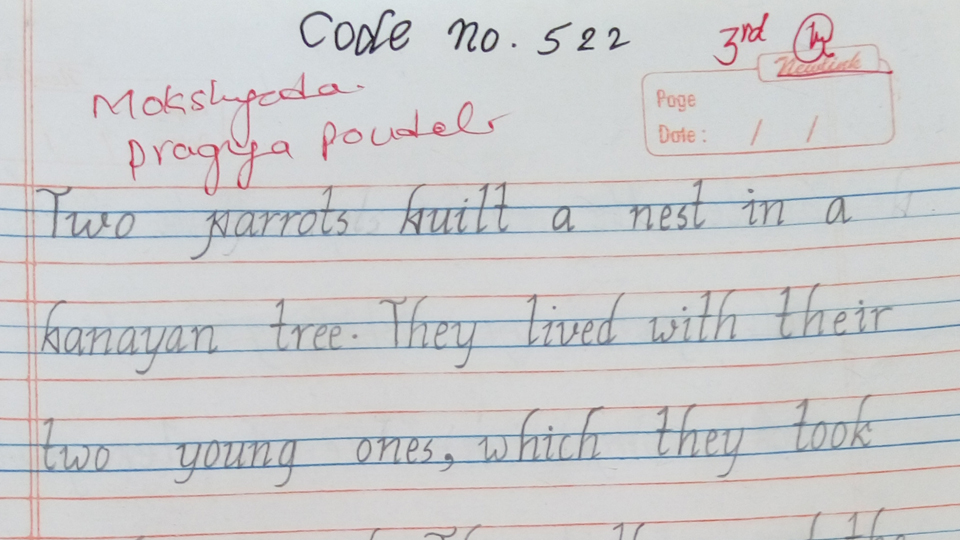 Code no. 522
3rd
Newlink
Mokshyada
Pragya Poudel
Page
Date: / /
Two parrots built a nest in a
banayan tree. They lived with their
two young ones, which they took